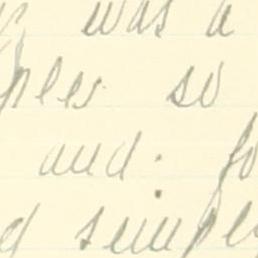 was a
ples so
and. fo
d simple